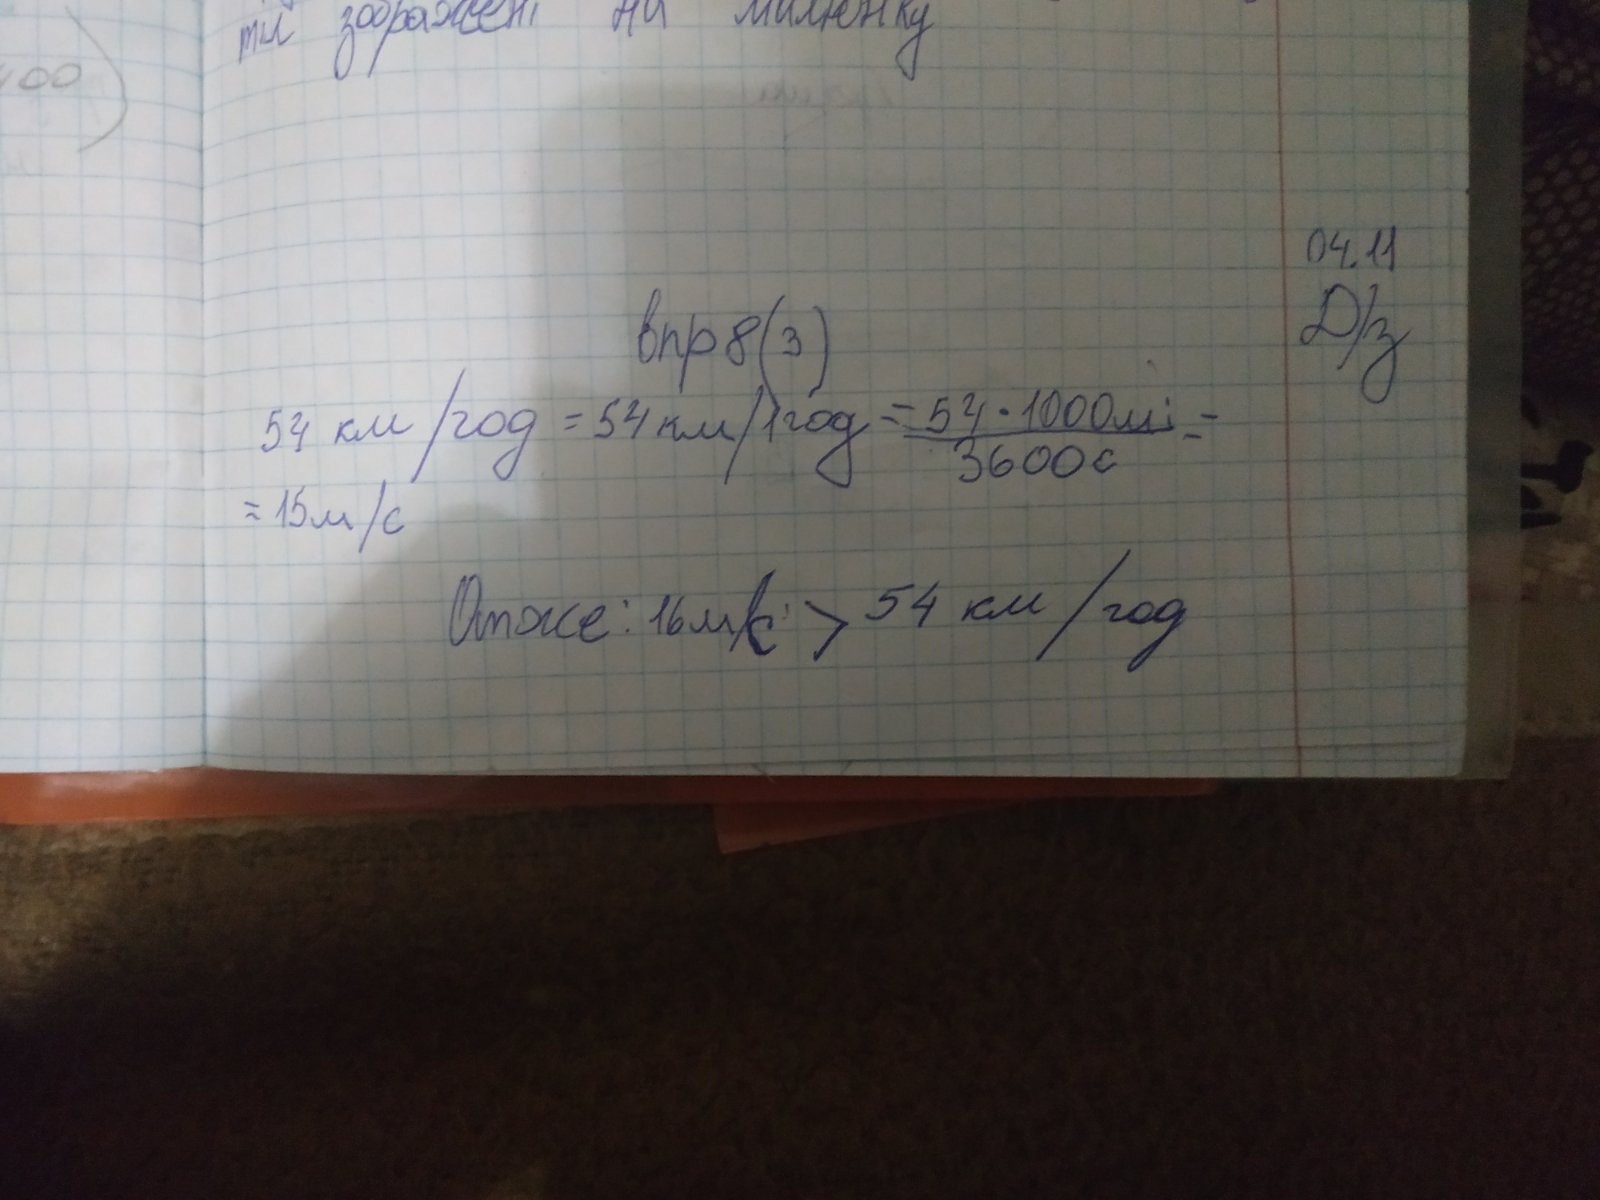 400
ти зображені на малюнку
04.11
Д/з
впр 8(3)
54 км/год = 54 км/1год = 54 · 1000м =
3600с
= 15м/с
Отже: 16м/с > 54 км/год